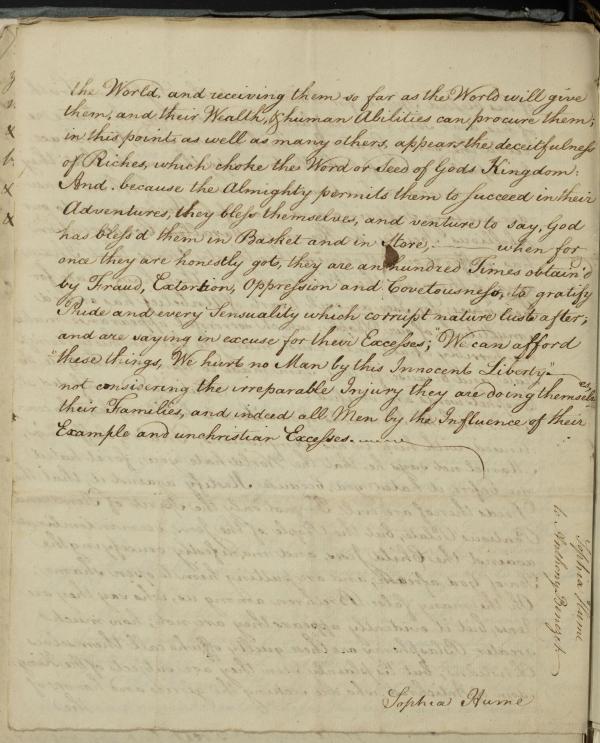 the World, and receiving them so far as the World will give
them, and their Wealth, & human Abilities can procure them;
in this point, as well as many others, appears the deceitfulness
of Riches, which choke the Word or Seed of Gods Kingdom:
And because the Almighty permits them to succeed in their
Adventures, they bless themselves, and venture to say, God
has bless'd them in Basket and in Store; — when for
once they are honestly got, they are an hundred Times obtain'd
by Fraud, Extortion, Oppression and Covetousness, to gratify
Pride and every Sensuality which corrupt nature lusts after,
and are saying in excuse for their Excesses; "We can afford
"these things, We hurt no Man by this Innocent Liberty" —
not considering the irreparable Injury they are doing themselves,
their Families, and indeed all Men by the Influence of their
Example and unchristian Excesses.
Sophia Hume
to Anthony Benezet
Sophia Hume